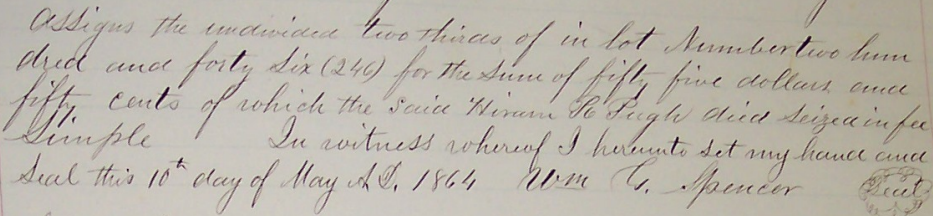 assigns the undivided two thirds of in lot Number two hun
dred and forty Six (246) for the Sum of fifty five dollars and
fifty cents of which the said Hiram H Pugh died seized in fee
Simple In witness whereof I hereunto set my hand and
Seal this 10th day of May A.D. 1864 Wm G. Spencer Seal